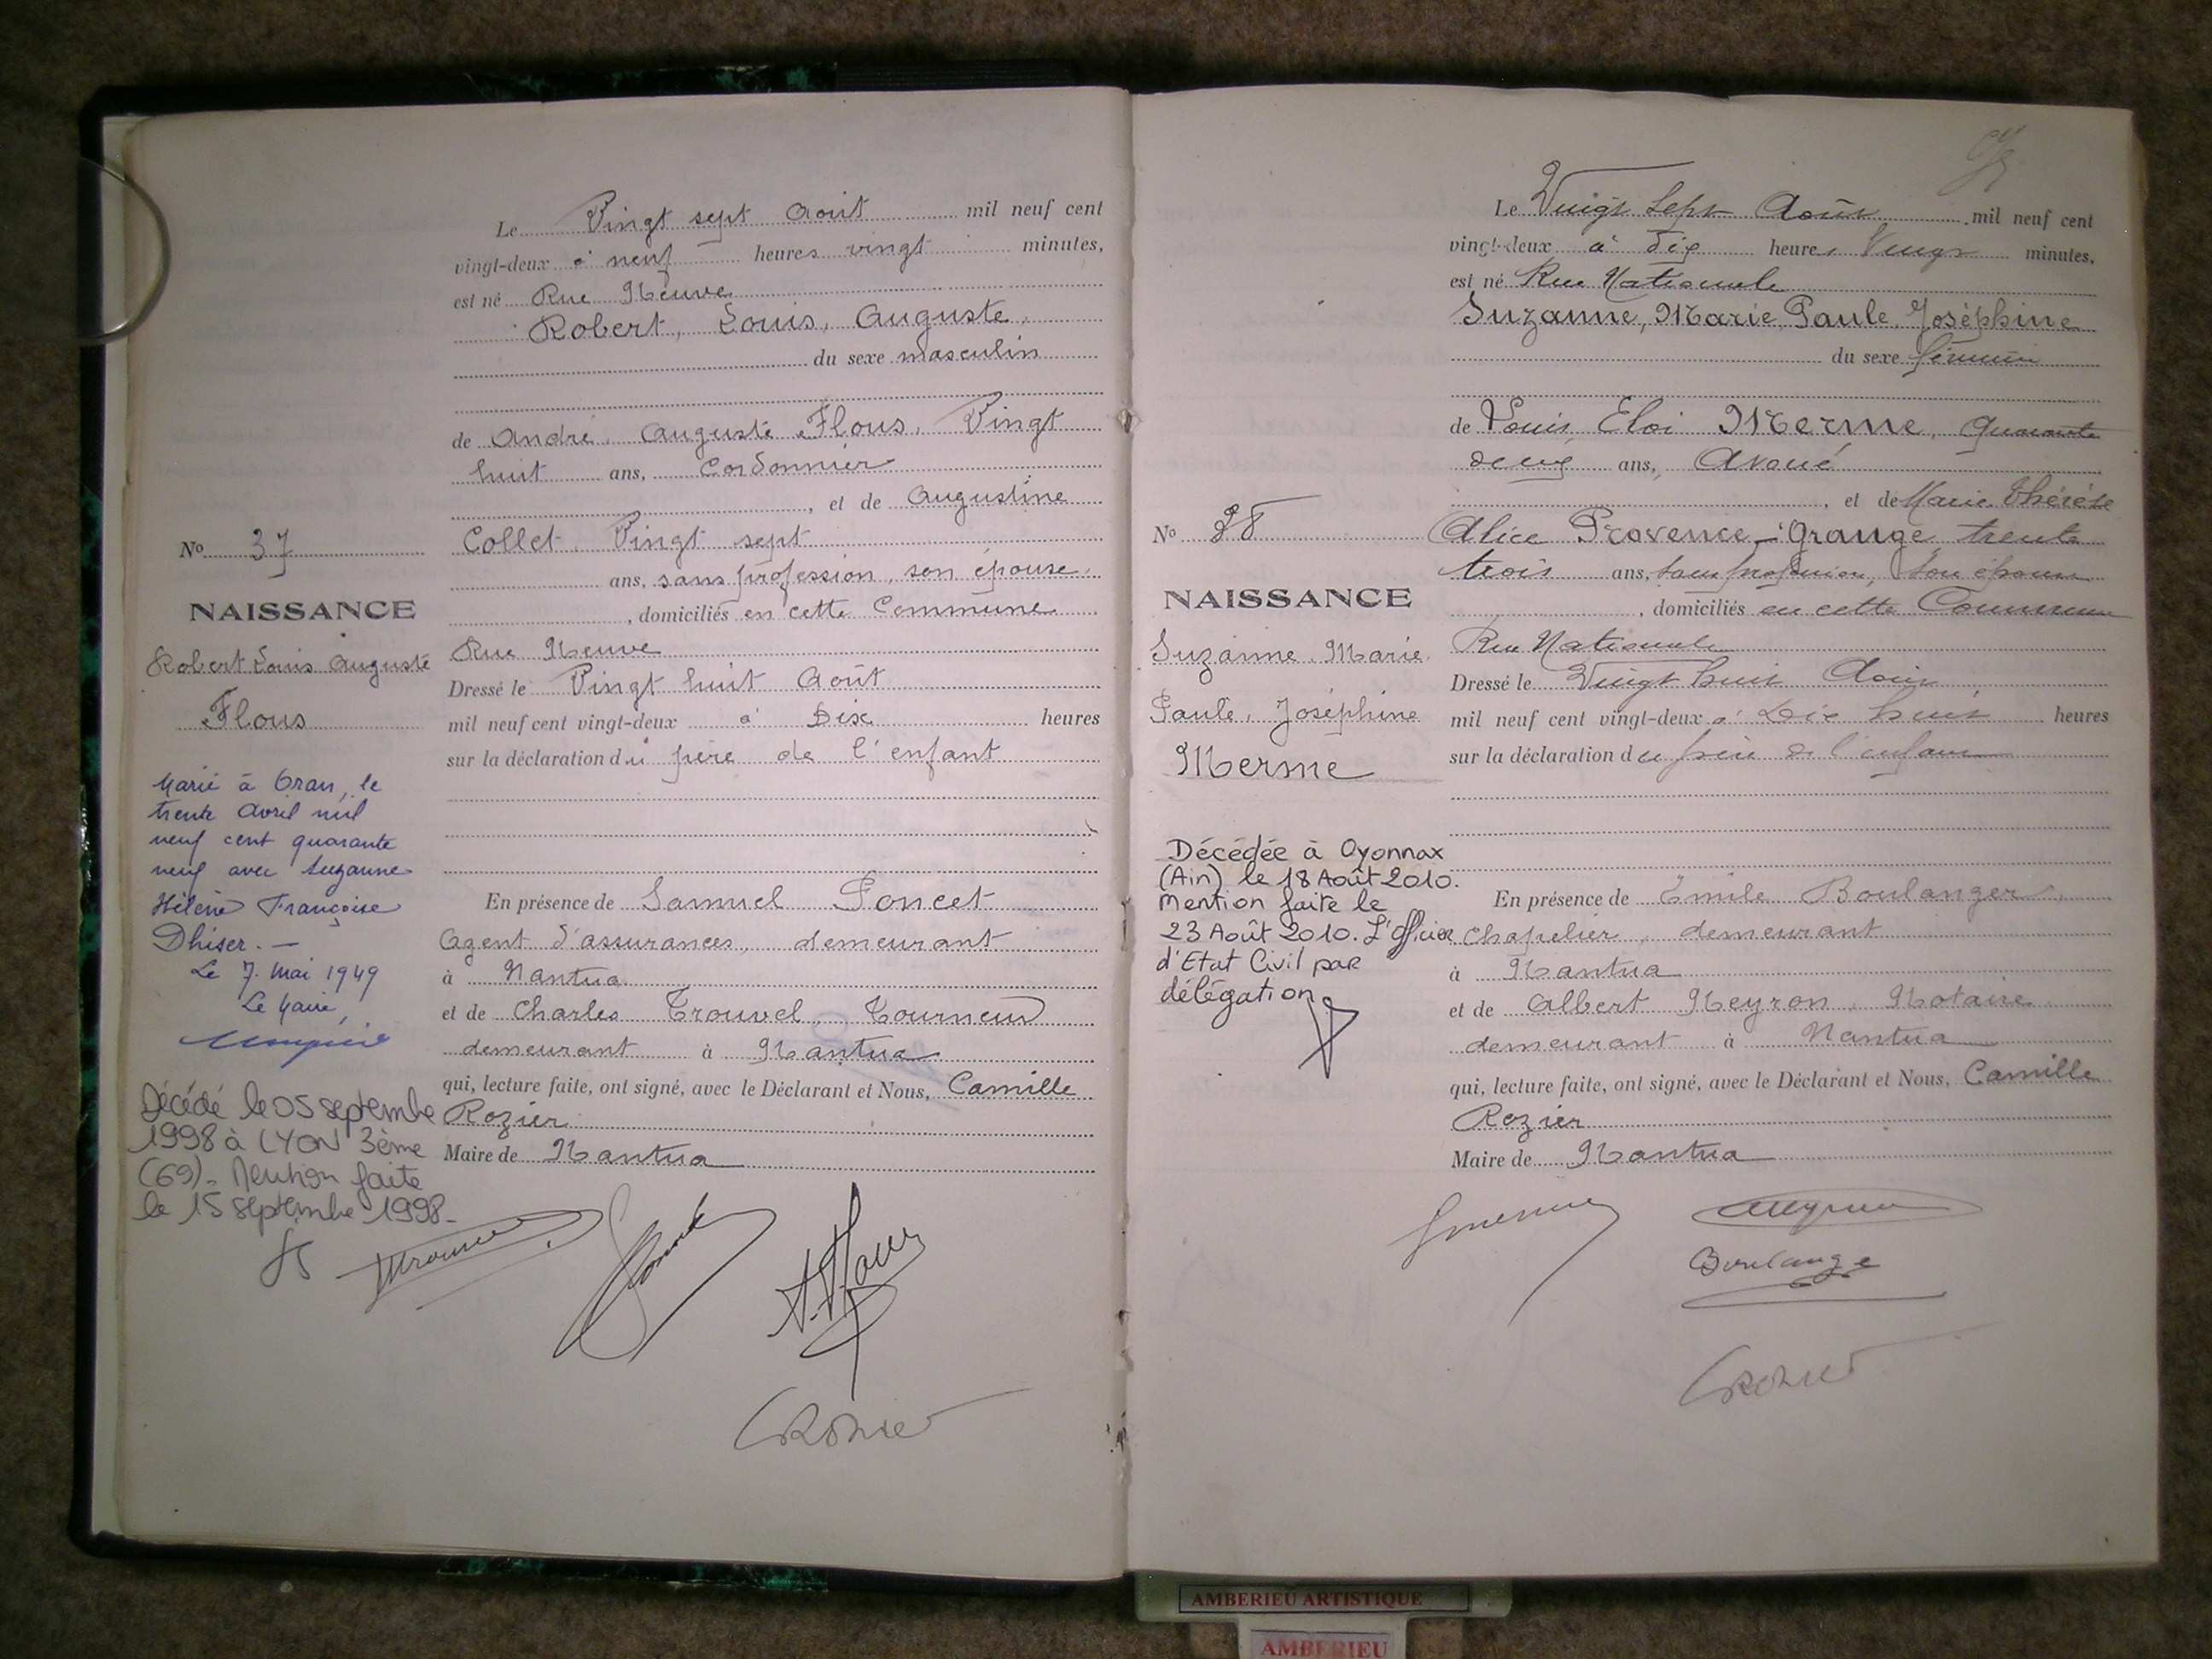 Le Vingt sept Août mil neuf cent
vingt-deux à neuf heures vingt minutes,
est né Rue Neuve
Robert, Louis, Auguste,
du sexe masculin
de André, Auguste Flous, Vingt
huit ans, Cordonnier
, et de Augustine
Collet, Vingt sept
ans, sans profession, son épouse,
, domiciliés en cette Commune
Rue Neuve
Dressé le Vingt huit Août
mil neuf cent vingt-deux à Dix heures
sur la déclaration du père de l'enfant
En présence de Samuel Poncet
Agent d'assurances, demeurant
à Nantua
et de Charles Trouvel, Tourneur
demeurant à Nantua
qui, lecture faite, ont signé, avec le Déclarant et Nous, Camille
Rozier
Maire de Nantua
No 37
NAISSANCE
Robert Louis Auguste
Flous
Marié à Oran, le
trente Avril mil
neuf cent quarante
neuf avec Suzanne
Hélène Françoise
Dhiser. —
Le 7. Mai 1949
Le Maire,
Décédé le 05 septembre
1998 à LYON 3ème
(69)_ Mention faite
le 15 septembre 1998_
A. Flous
CRozier
Le Vingt Sept Août mil neuf cent
vingt-deux à dix heures Vingt minutes,
est né Rue Nationale
Suzanne, Marie, Paule, Joséphine
du sexe féminin
de Louis Eloi Merme, quarante
deux ans, Avoué
, et de Marie Thérèse
Alice Provence-Grange trente
trois ans, sans profession, son épouse
, domiciliés en cette Commune
Rue Nationale
Dressé le Vingt huit Août
mil neuf cent vingt-deux à Dix huit heures
sur la déclaration du père de l'enfant
En présence de Emile Boulanger,
Chapelier, demeurant
à Nantua
et de Albert Neyron, Notaire
demeurant à Nantua
qui, lecture faite, ont signé, avec le Déclarant et Nous, Camille
Rozier
Maire de Nantua
No 38
NAISSANCE
Suzanne, Marie,
Paule, Joséphine
Merme
Décédée à Oyonnax
(Ain) le 18 Août 2010.
Mention faite le
23 Août 2010. L'officier
d'Etat Civil par
délégation
Boulanger
CRozier
AMBERIEU ARTISTIQUE
AMBERIEU